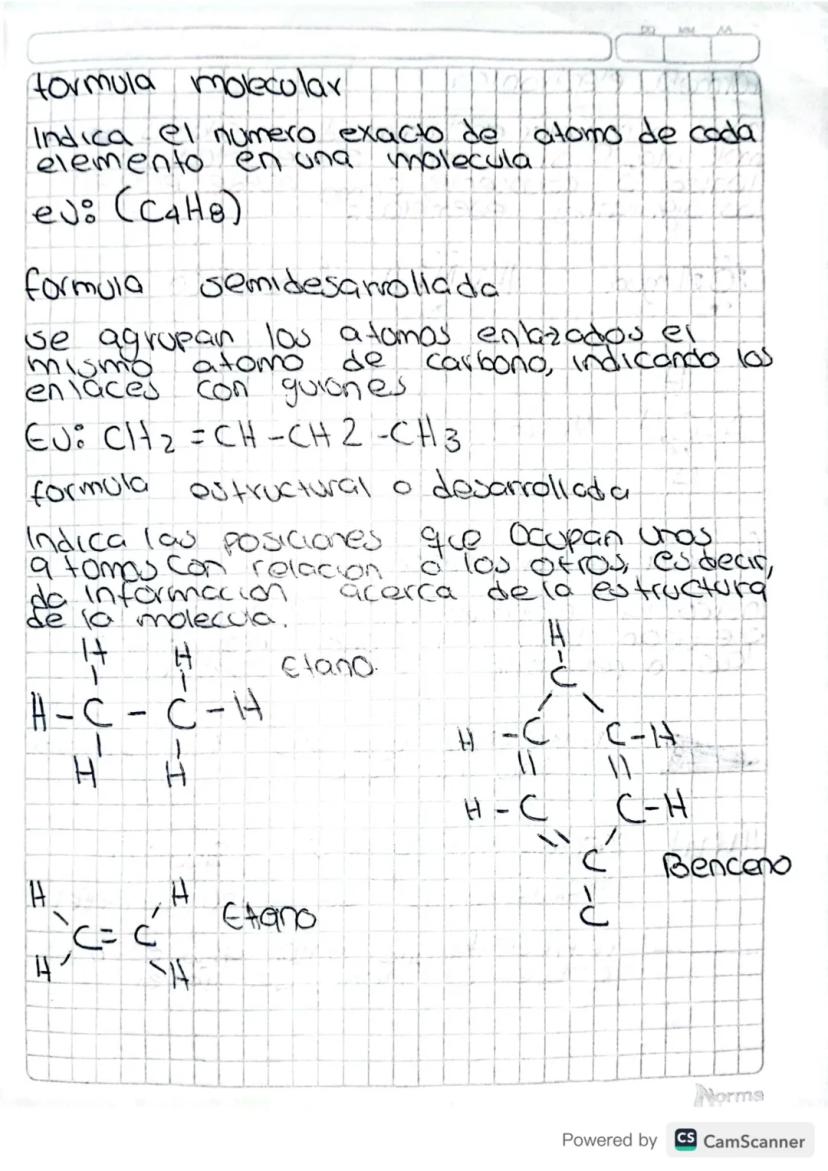 DD MM AA
formula molecular
Indica el numero exacto de atomo de cada
elemento en una molecula
eJ: (C4H8)
formula semidesarrollada
se agrupan los atomos enlazados el
mismo atomo de carbono, indicando los
enlaces con guiones
EJ: CH2 = CH - CH2 - CH3
formula estructural o desarrollada
Indica las posiciones que ocupan unos
atomos con relacion a los otros, es decir,
da informacion acerca de la estructura
de la molecula.
H H Etano.
H - C - C - H
H H
H
C
H - C C - H
H - C C - H
C Benceno
C
H H Etano
C = C
H H
Norma
Powered by CS CamScanner